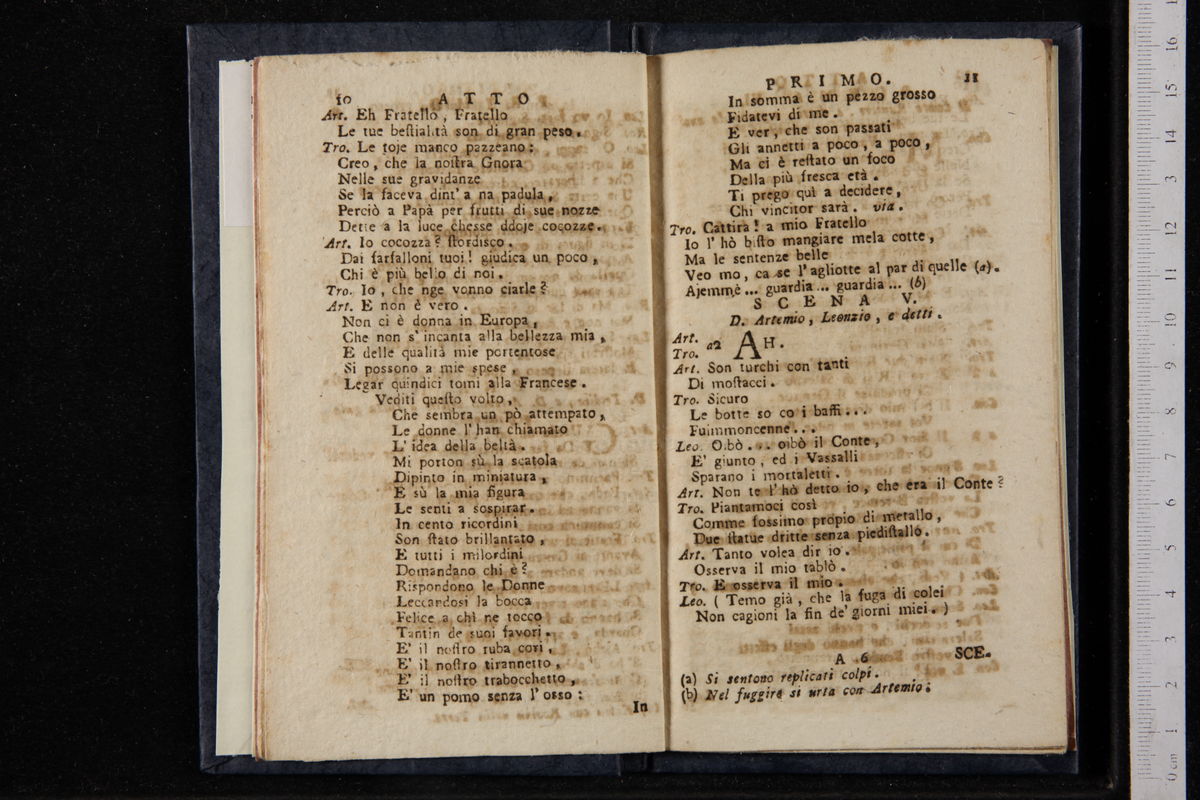 10 ATTO
Art. Eh Fratello, Fratello
Le tue beſtialità son di gran peso.
Tro. Le toje manco pazzeano:
Creo, che la noſtra Gnora
Nelle sue gravidanze
Se la faceva dint' a na padula,
Perciò a Papà per frutti di sue nozze
Dette a la luce chesse ddoje cocozze.
Art. Io cocozza? ſtordisco.
Dai farfalloni tuoi! giudica un poco,
Chi è più bello di noi.
Tro. Io, che nge vonno ciarle?
Art. E non è vero.
Non ci è donna in Europa,
Che non s'incanta alla bellezza mia,
E delle qualità mie portentose
Si possono a mie spese,
Legar quindici tomi alla Francese.
Vediti queſto volto,
Che sembra un pò attempato,
Le donne l'han chiamato
L'idea della beltà.
Mi porton sù la scatola
Dipinto in miniatura,
E sù la mia figura
Le senti a sospirar.
In cento ricordini
Son ſtato brillantato,
E tutti i milordini
Domandano chi è?
Rispondono le Donne
Leccandosi la bocca
Felice a chi ne tocco
Tantin de suoi favori.
E' il noſtro ruba cori,
E' il noſtro tirannetto,
E' il noſtro trabocchetto,
E' un pomo senza l'osso:
In
PRIMO. 11
In somma è un pezzo grosso
Fidatevi di me.
E ver, che son passati
Gli annetti a poco, a poco,
Ma ci è reſtato un foco
Della più fresca età.
Ti prego quì a decidere,
Chi vincitor sarà. via.
Tro. Cattira! a mio Fratello
Io l'hò biſto mangiare mela cotte,
Ma le sentenze belle
Veo mo, ca se l'agliotte al par di quelle (a).
Ajemmè... guardia... guardia... (b)
SCENA V.
D. Artemio, Leonzio, e detti.
Art.
Tro. a2 AH.
Art. Son turchi con tanti
Di moſtacci.
Tro. Sicuro
Le botte so co i baffi...
Fuimmoncenne...
Leo. Oibò... oibò il Conte,
E' giunto, ed i Vassalli
Sparano i mortaletti.
Art. Non te l'hò detto io, che era il Conte?
Tro. Piantamoci così
Comme fossimo propio di metallo,
Due ſtatue dritte senza piediſtallo.
Art. Tanto volea dir io.
Osserva il mio tablò.
Tro. E osserva il mio.
Leo. (Temo già, che la fuga di colei
Non cagioni la fin de' giorni miei.)
A 6 SCE.
(a) Si sentono replicati colpi.
(b) Nel fuggire si urta con Artemio.